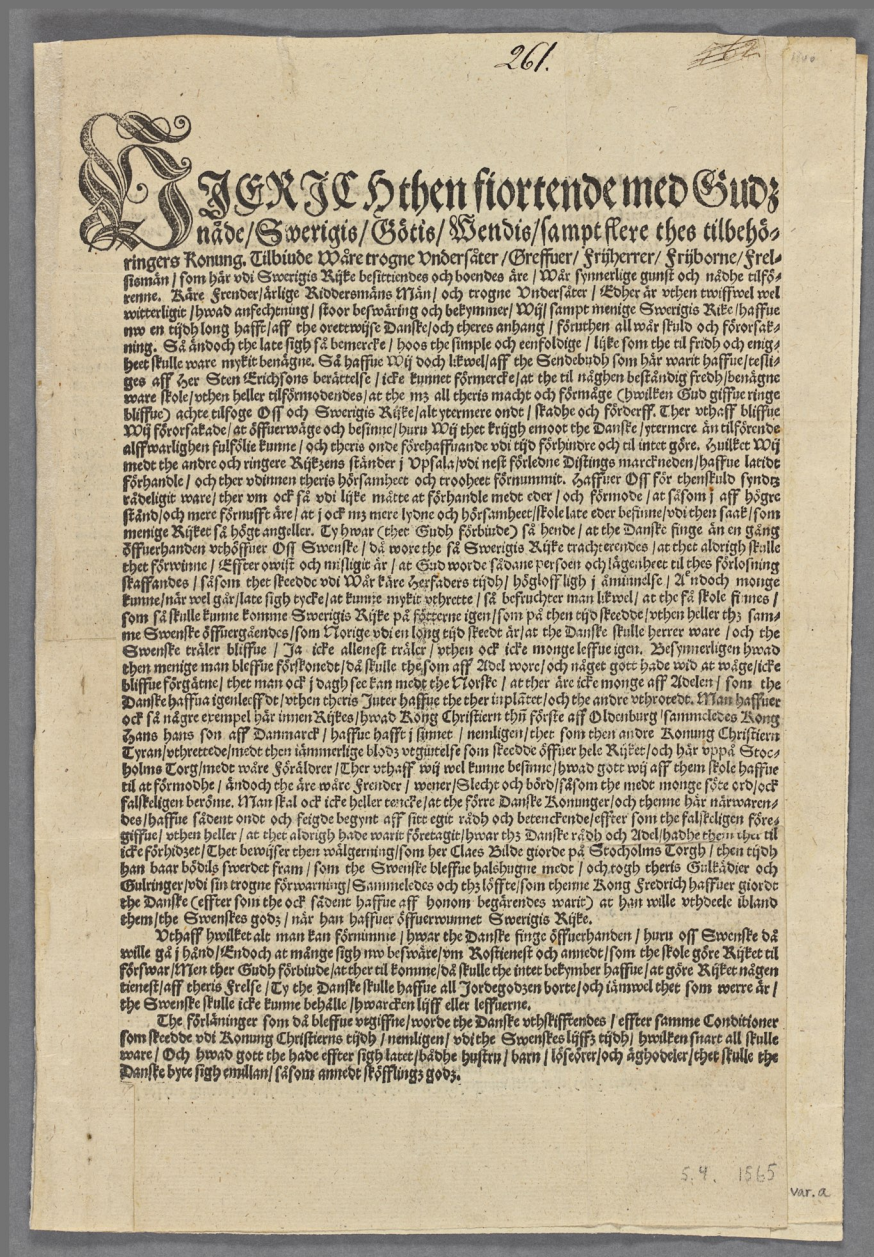 261.
WJ ERICH then fiortende med Gudz
nåde/Swerigis/Götis/Wendis/sampt flere thes tilbehö⸗
ringers Konung. Tilbiude Wåre trogne Vndersåter/Greffuer/Frijherrer/Frijborne/Frel⸗
sismän/som här vdi Swerigis Rijke besittiendes och boendes äre/Wår synnerlige gunst och nådhe tilför⸗
renne. Käre Frender/ärlige Riddersmäns Män/och trogne Vndersåter/Edher är vthen twiffwel wel
witterligit/hwad anfechtning/stoor beswäring och bekymmer/Wij/sampt menige Swerigis Rike/haffue
nw en tijdh long hafft/aff the orettwijse Danske/och theres anhang/föruthen all wår skuld och förorsak⸗
ning. Så ändoch the late sigh så bemercke/hoos the simple och eenfoldige/lijke som the til fridh och enig⸗
heet skulle ware mykit benägne. Så haffue Wij doch likwel/aff the Sendebudh som här warit haffue/tesli⸗
ges aff Her Sten Erichsons berättelse/icke kunnet förmercke/at the til någhen beständig fredh/benägne
ware skole/vthen heller tilförmodendes/at the mz all theris macht och förmäge (hwilken Gud giffue ringe
bliffue) achte tilfoge Oss och Swerigis Rijke/alt ytermere ondt/skadhe och förderff. Ther vthaff bliffue
Wij förorsakade/at öffuerwäge och besinne/huru Wij thet krijgh emoot the Danske/ytermere än tilförende
alffwarlighen fulfölie kunne/och theris onde förehaffuande vdi tijd förhindre och til intet göre. Huilket Wij
medt the andre och ringere Rijkzens ständer j Vpsala/vdi nest förledne Distings marckneden/haffue latidt
förhandle/och ther vdinnen theris hörsamheet och trooheet förnummit. Haffuer Oss för thenskuld syndtz
rådeligit ware/ther vm ock så vdi lijke mätte at förhandle medt eder/och förmode/at såsom j aff högre
stånd/och mere förnufft äre/at j ock mz mere lydne och hörsamheet/skole late eder befinne/vdi then saak/som
menige Rijket så högt angeller. Ty hwar (thet Gudh förbiude) så hende/at the Danske finge än en gång
öffuerhanden vthöffuer Oss Swenske/då wore the så Swerigis Rijke trachterendes/at thet aldrigh skulle
thet förwinne/Effter owist och misligit är/at Gud worde sådane persoen och lägenheet til thes förlosning
skaffandes/såsom thet skeedde vdi Wår käre Herfaders tijdh/högloffligh j åminnelse/Ändoch monge
kunne/när wel går/late sigh tycke/at kunne mykit vthrette/så befruchter man likwel/at the få skole finnes/
som så skulle kunne komme Swerigis Rijke på fötterne igen/som på then tijd skeedde/vthen heller thz sam⸗
me Swenske öffuergåendes/som Norige vdi en long tijd skeedt är/at the Danske skulle herrer ware/och the
Swenske träler bliffue/Ja icke allenest träler/vthen ock icke monge leffue igen. Besynnerligen hwad
then menige man bleffue förskonedt/då skulle the/som aff Adel wore/och något gott hade wid at wäge/icke
bliffue förgätne/thet man ock j dagh see kan medt the Norske/at ther äre icke monge aff Adelen/som the
Danske haffua igenleffdt/vthen theris Juter haffue the ther inplåtet/och the andre vthrotedt. Man haffuer
ock så någre exempel här innen Rijkes/hwad Kong Christiern thñ förste aff Oldenburg/sammeledes Kong
Hans hans son aff Danmarck/haffue hafft j sinnet/nemligen/thet som then andre Konung Christiern
Tyran/vthrettede/medt then iämmerlige blodz vtgiutelse som skeedde öffuer hele Rijket/och här vppå Stoc⸗
holms Torg/medt wåre Föräldrer/Ther vthaff wij wel kunne besinne/hwad gott wij aff them skole haffue
til at förmodhe/ändoch the äre wåre Frender/wener/Slecht och börd/såsom the medt monge söte ord/ock
falskeligen beröme. Man skal ock icke heller tencke/at the förre Danske Konunger/och thenne här närwaren⸗
des/haffue sådent ondt och feigde begynt aff sitt egit rådh och betenckende/effter som the falskeligen före⸗
giffue/vthen heller/at thet aldrigh hade warit företagit/hwar thz Danske rådh och Adel/hadhe them ther til
icke förhidzet/Thet bewijser then wälgerning/som her Claes Bilde giorde på Stocholms Torgh/then tijdh
han baar bödils swerdet fram/som the Swenske bleffue halshugne medt/och togh theris Gulkådier och
Gulringer/vdi sin trogne förwarning/Sammeledes och thz löffte/som thenne Kong Fredrich haffuer giordt
the Danske (effter som the ock sådent haffue aff honom begärendes warit) at han wille vthdeele ibland
them/the Swenskes godz/när han haffuer öffuerwunnet Swerigis Rijke.
Vthaff hwilket alt man kan förnimme/hwar the Danske finge öffuerhanden/huru oss Swenske då
wille gå j händ/Endoch at månge sigh nw beswäre/vm Rostienest och annedt/som the skole göre Rijket til
förswar/Men ther Gudh förbiude/at ther til komme/då skulle the intet bekymber haffue/at göre Rijket någen
tienest/aff theris Frelse/Ty the Danske skulle haffue all Jordegodzen borte/och iämwel thet som werre är/
the Swenske skulle icke kunne behålle/hwarcken lijff eller leffuerne.
The förläninger som då bleffue vtgiffne/worde the Danske vthskifftendes/effter samme Conditioner
som skeedde vdi Konung Christierns tijdh/nemligen/vdi the Swenskes lijffz tijdh/hwilken snart all skulle
ware/Och hwad gott the hade effter sigh latet/bådhe hustru/barn/lösörer/och äghodeler/thet skulle the
Danske byte sigh emillan/såsom annedt sköfflingz godz.
5.4. 1565
var. a